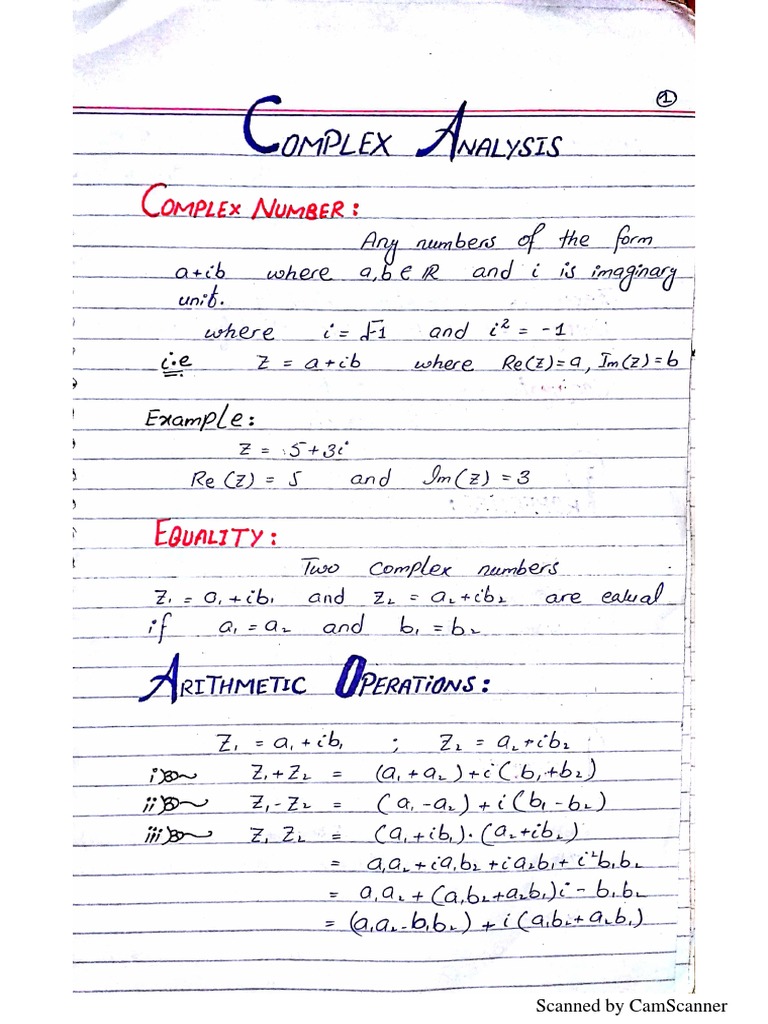 1
COMPLEX ANALYSIS
COMPLEX NUMBER:
Any numbers of the form
a+ib where a,b∈ℝ and i is imaginary
unit.
where i = √-1 and i² = -1
i.e z = a+ib where Re(z)=a, Im(z)=b
Example:
z = 5+3i
Re(z) = 5 and Im(z) = 3
EQUALITY:
Two complex numbers
z₁ = a₁+ib₁ and z₂ = a₂+ib₂ are eaual
if a₁=a₂ and b₁=b₂
ARITHMETIC OPERATIONS:
z₁ = a₁+ib₁ ; z₂ = a₂+ib₂
i) z₁+z₂ = (a₁+a₂)+i(b₁+b₂)
ii) z₁-z₂ = (a₁-a₂)+i(b₁-b₂)
iii) z₁ z₂ = (a₁+ib₁)·(a₂+ib₂)
= a₁a₂+ia₁b₂+ia₂b₁+i²b₁b₂
= a₁a₂+(a₁b₂+a₂b₁)i-b₁b₂
= (a₁a₂-b₁b₂)+i(a₁b₂+a₂b₁)
Scanned by CamScanner